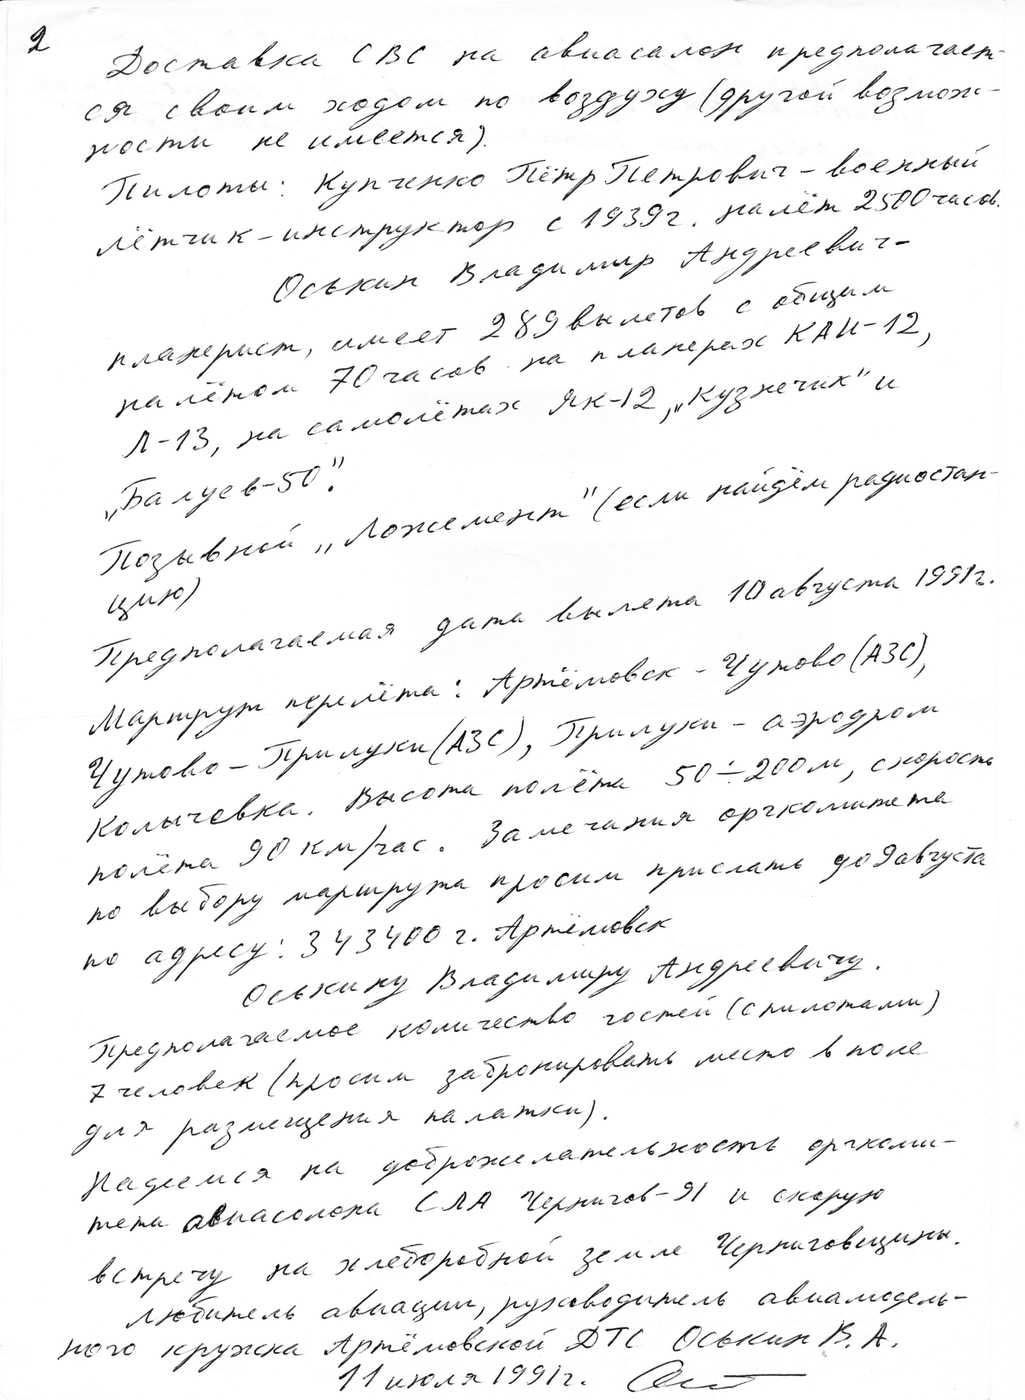 2
Доставка СВС на авиасалон предполагает-
ся своим ходом по воздуху (другой возмож-
ности не имеется).
Пилоты: Купченко Пётр Петрович – военный
лётчик-инструктор с 1939 г. налёт 2500 часов.
Оськин Владимир Андреевич –
планерист, имеет 289 вылетов с общим
налётом 70 часов на планерах КАИ-12,
Л-13, на самолётах Як-12, „Кузнечик" и
„Балуев-50".
Позывной „Ложемент" (если найдём радиостан-
цию)
Предполагаемая дата вылета 10 августа 1991г.
Маршрут перелёта: Артёмовск - Чутово (АЗС),
Чутово – Прилуки (АЗС), Прилуки – аэродром
Колычовка. Высота полёта 50÷200 м, скорость
полёта 90 км/час. Замечания оргкомитета
по выбору маршрута просим прислать до 9 августа
по адресу: 343400 г. Артёмовск
Оськину Владимиру Андреевичу.
Предполагаемое количество гостей (с пилотами)
7 человек (просим забронировать место в поле
для размещения палатки).
Надеемся на доброжелательность оргкоми-
тета авиасолона СЛА Чернигов-91 и скорую
встречу на хлеборобной земле Черниговщины.
Любитель авиации, руководитель авиамодель-
ного кружка Артёмовской ДТС Оськин В. А.
11 июля 1991г.